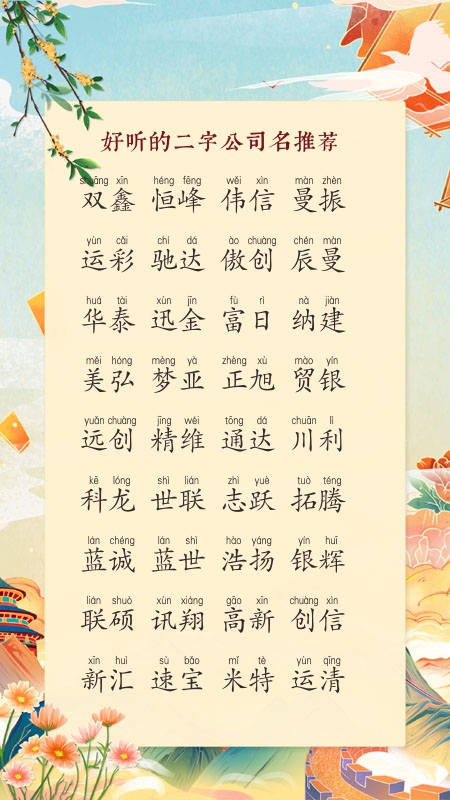 好听的二字公司名推荐
shuāng xīn héng fēng wěi xìn màn zhèn
双鑫 恒峰 伟信 曼振
yùn cǎi chí dá ào chuàng chén màn
运彩 驰达 傲创 辰曼
huá tài xùn jīn fù rì nà jiàn
华泰 迅金 富日 纳建
měi hóng mèng yà zhèng xù mào yín
美弘 梦亚 正旭 贸银
yuǎn chuàng jīng wéi tōng dá chuān lì
远创 精维 通达 川利
kē lóng shì lián zhì yuè tuò téng
科龙 世联 志跃 拓腾
lán chéng lán shì hào yáng yín huī
蓝诚 蓝世 浩扬 银辉
lián shuò xùn xiáng gāo xīn chuàng xìn
联硕 讯翔 高新 创信
xīn huì sù bǎo mǐ tè yùn qīng
新汇 速宝 米特 运清